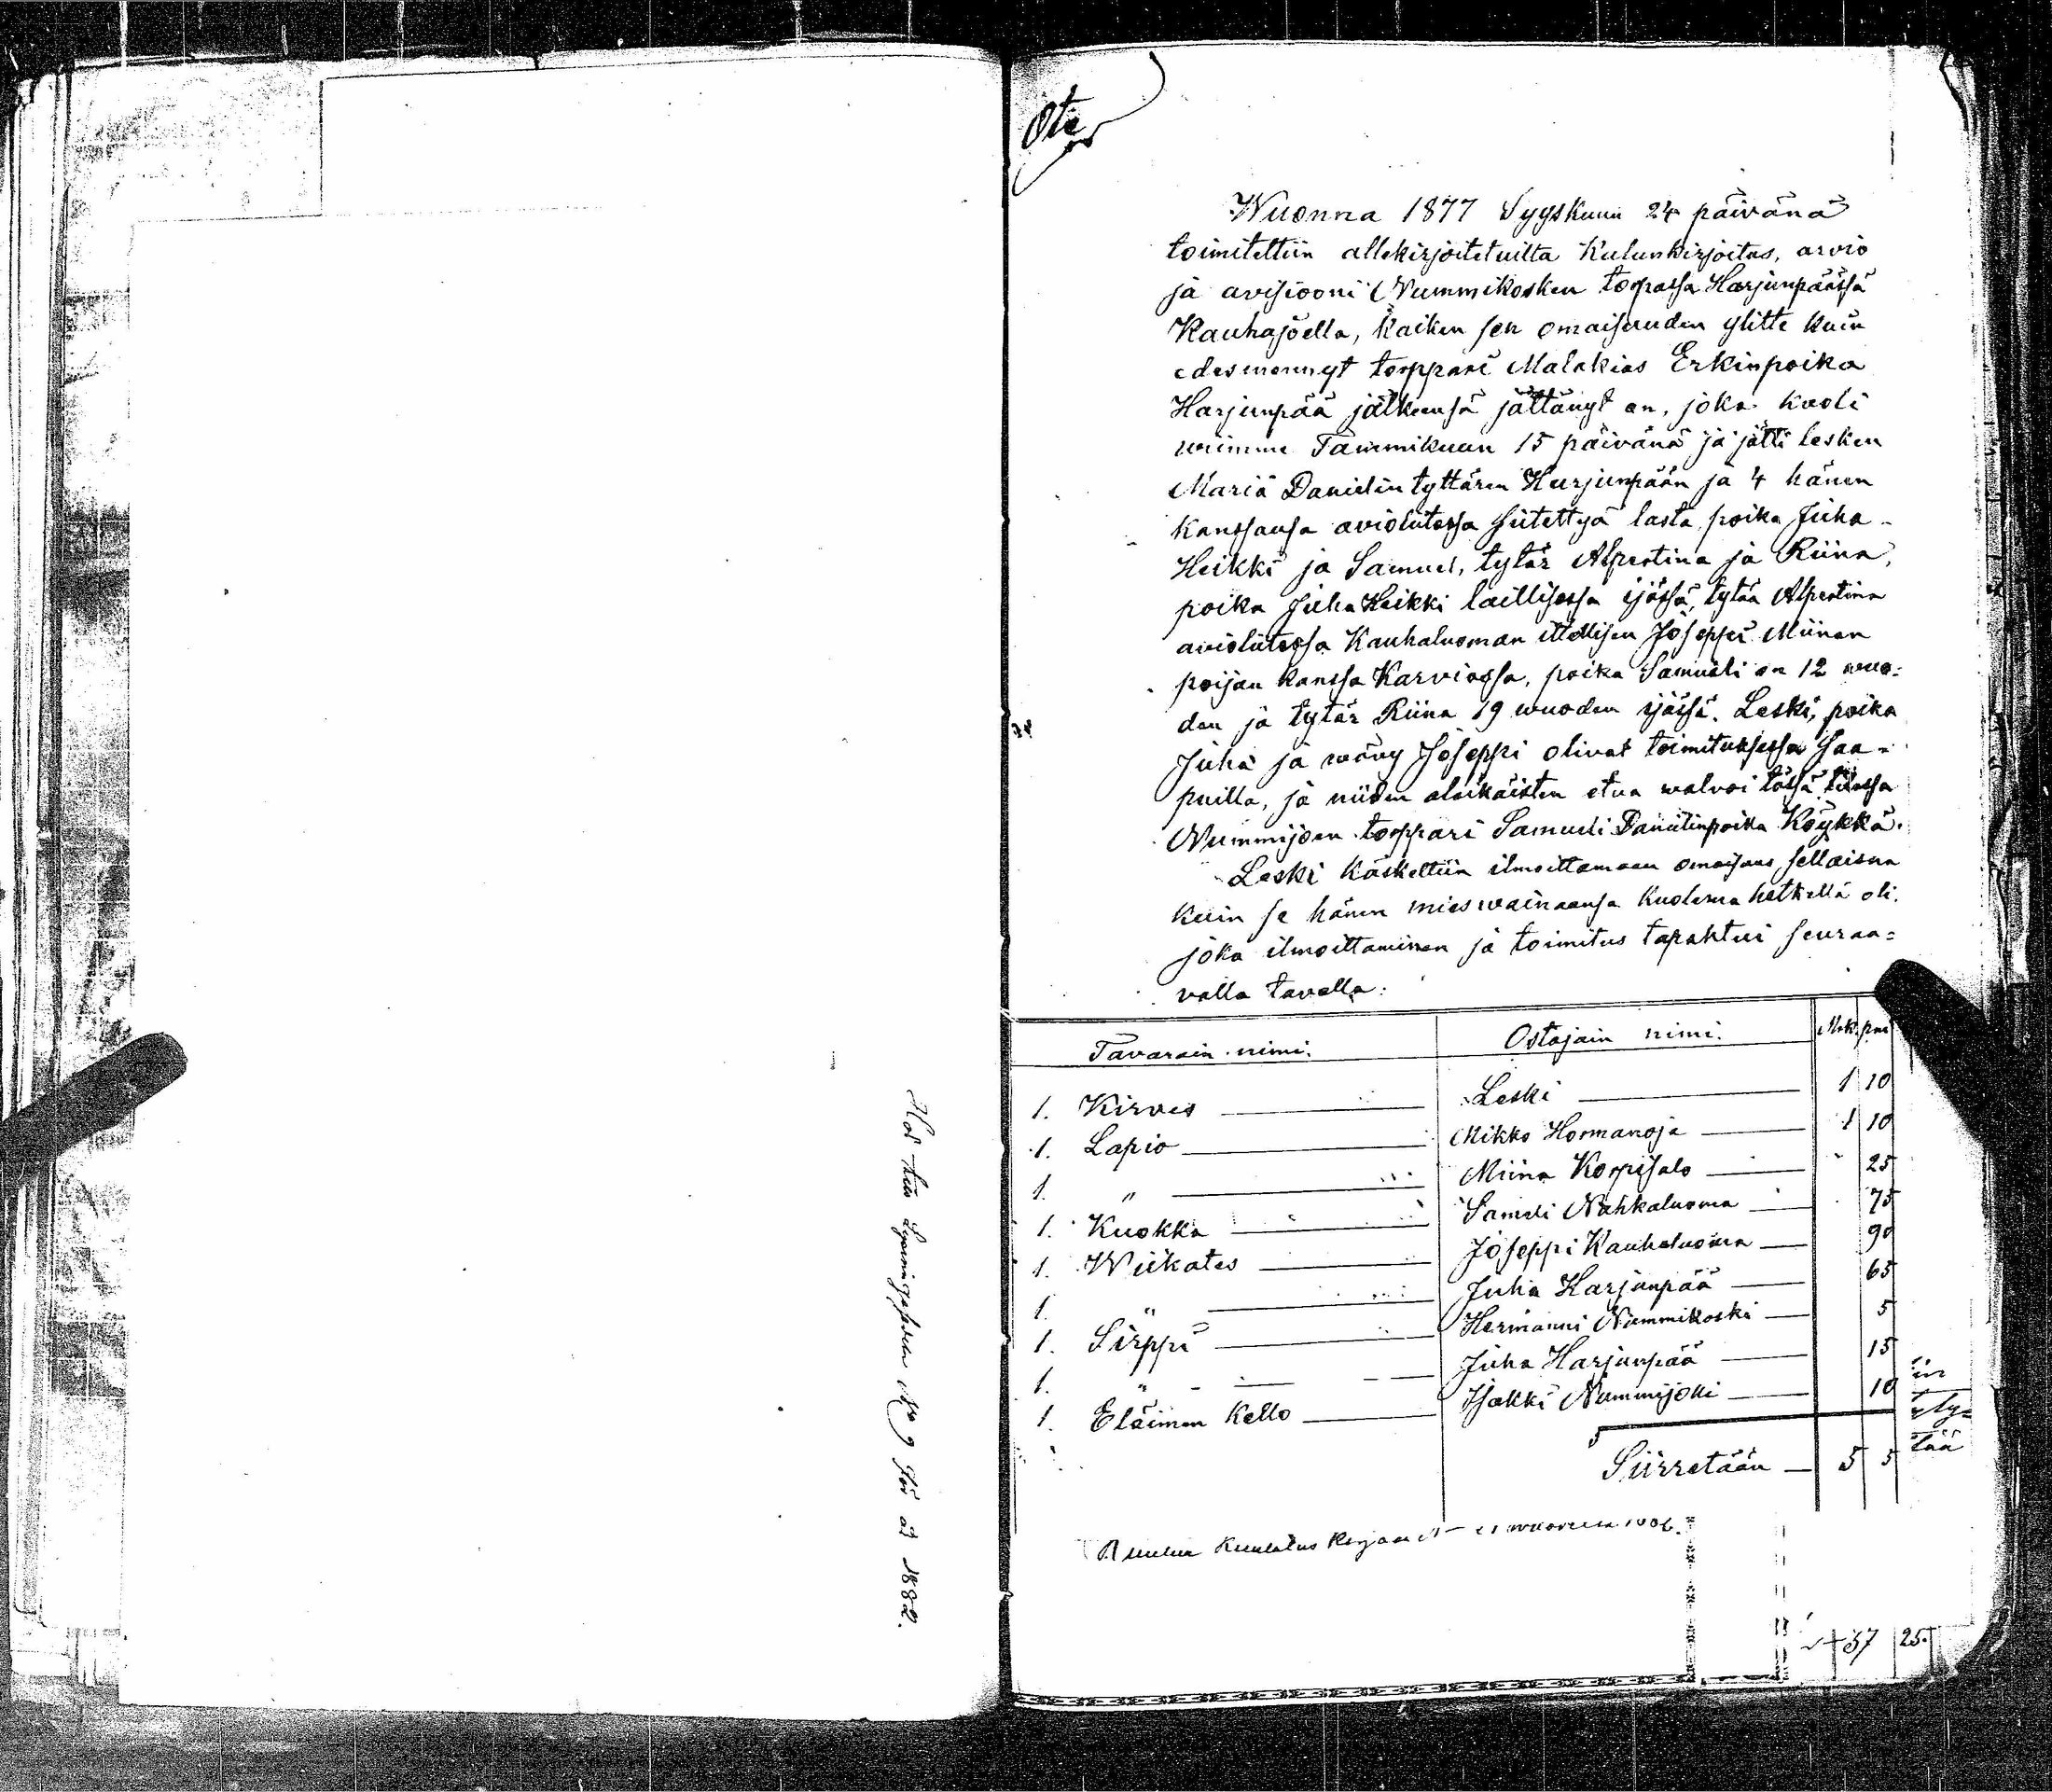 Ote
Wuonna 1877 Syyskuun 24 päivänä
toimitettiin allekirjoitetuilta Kalunkirjoitus, arvio
ja avisiooni Nummikosken torpassa Harjunpäässä
Kauhajoella, kaiken sen omaisuuden ylitte kuin
edesmennyt torppari Malakias Erkinpoika
Harjunpää jälkeensä jättänyt on, joka kuoli
wiimme Tammikuun 15 päivänä ja jätti lesken
Maria Danielin tyttären Harjunpään ja 4 hänen
kanssansa avioliitossa siitettyä lasta, poika Juha-
Heikki ja Samuel, tytär Alpertina ja Riina,
poika Juha Heikki laillisessa ijässä, tytär Alpertina
avioliitossa Kauhaluoman itsellisen Joseppi Miinan
poijan kanssa Karviassa, poika Samueli on 12 wuo=
den ja tytär Riina 19 wuoden ijässä. Leski, poika
Juha ja wävy Joseppi olivat toimituksessa saa=
puilla, ja niiden alaikäisten etua walvoi tässä tilassa
Nummijoen torppari Samueli Danielinpoika Köykkä.
Leski käskettiin ilmoittamaan omaisuus sellaisna
kuin se hänen mieswainaansa kuolema hetkellä oli.
joka ilmoittaminen ja toimitus tapahtui seuraa=
valla tavalla:
Tavarain nimi. Ostajain nimi. Mrk. pni
1. Kirves Leski 1 10
1. Lapio Mikko Hormanoja 1 10
1. " Miina Korpisalo " 25
1. Kuokka Samuli Nahkaluoma 75
1. Wiikates Joseppi Kauhaluoma 90
1. " Juha Harjunpää 65
1. Sirppi Hermanni Nummikoski 5
1. " Juha Harjunpää 15
1. Eläimen Kello Isakki Nummijoki 10
Siirretään 5 5
Kuulutus
tää
37 25.
N:o 9 för år 1882.